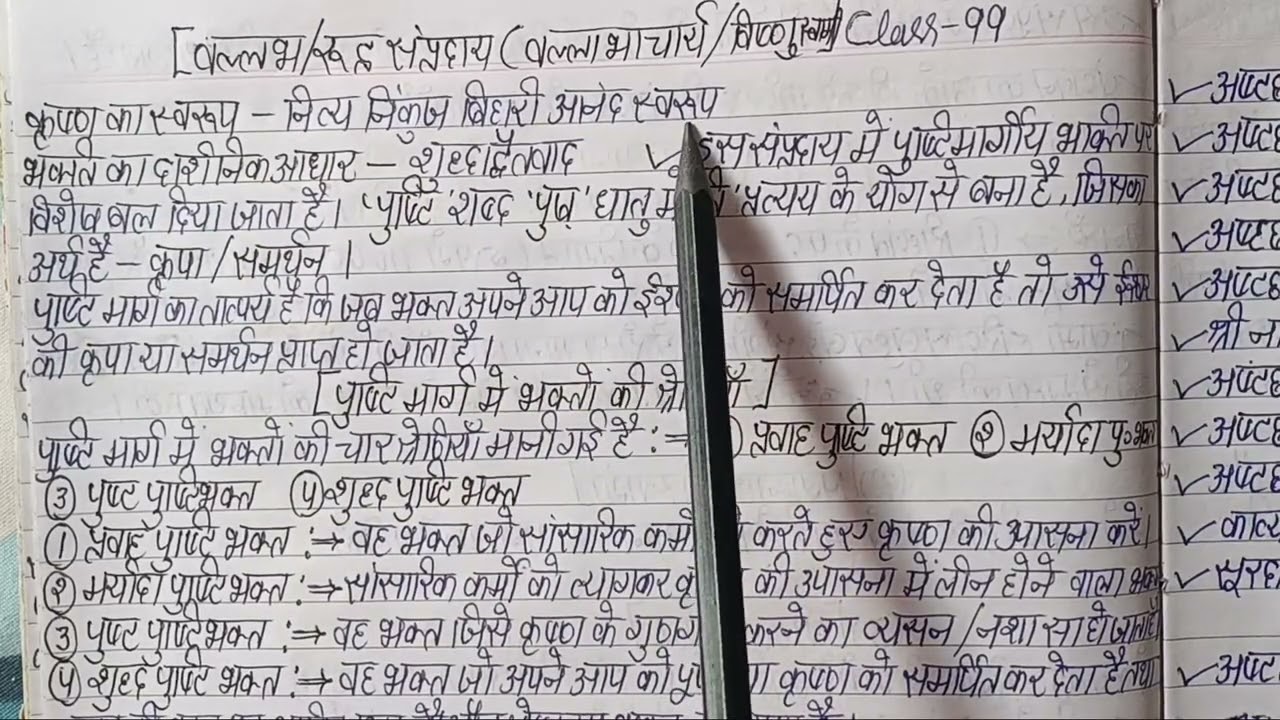 [वल्लभ/रूद्र संप्रदाय (वल्लाभाचार्य/विष्णुस्वामी) Class-99
कृष्ण का स्वरूप – नित्य निकुंज बिहारी आनंद स्वरूप
भक्ति का दार्शनिक आधार – शुद्धाद्वैतवाद ✓ इस संप्रदाय में पुष्टिमार्गीय भक्ति पर
विशेष बल दिया जाता है। 'पुष्टि' शब्द 'पुष्' धातु में प्रत्यय के योग से बना है, जिसका
अर्थ है – कृपा/समर्थन।
पुष्टि मार्ग का तात्पर्य है कि जब भक्त अपने आप को को समर्पित कर देता है तो उसे ईश्वर
की कृपा या समर्थन प्राप्त हो जाता है।
[पुष्टि मार्ग में भक्तो की]
पुष्टि मार्ग में भक्तों की चार श्रेणियाँ मानी गई है :⇒ प्रवाह पुष्टि भक्त ② मर्यादा पु॰भक्त
③ पुष्ट पुष्टि भक्त ④ शुद्ध पुष्टि भक्त
① प्रवाह पुष्टि भक्त :⇒ वह भक्त जो सांसारिक करते हुए कृष्ण की उपासना करें।
② मर्यादा पुष्टि भक्त :⇒ सांसारिक कर्मों को त्यागकर की उपासना में लीन होने वाला भक्त
③ पुष्ट पुष्टि भक्त :⇒ वह भक्त जिसे कृष्ण के करने का व्यसन/नशा सा हो जाता है
④ शुद्ध पुष्टि भक्त :⇒ वह भक्त जो अपने आप को कृष्ण को समर्पित कर देता है तथा
✓ अष्टछ
✓ अष्टछ
✓ अष्टछ
✓ अष्टछ
✓ अष्टछ
✓ श्री न
✓ अष्टछ
✓ अष्टछ
✓ अष्टछ
✓ काव्य
✓ सूरद
✓ अष्ट